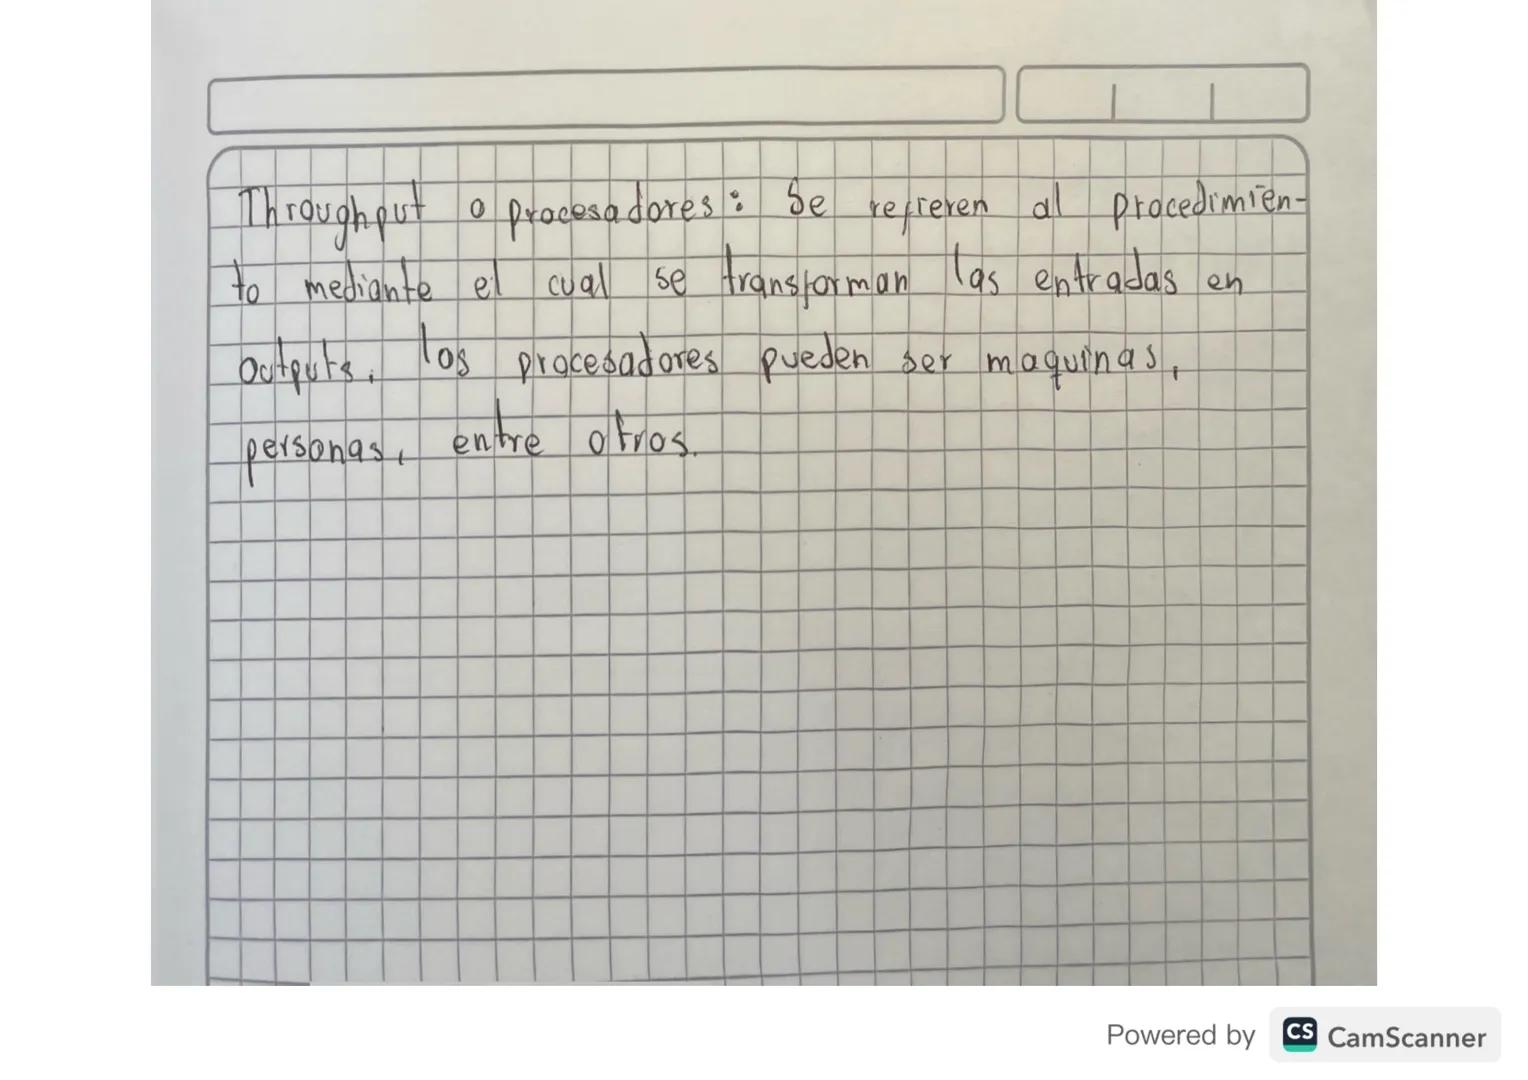 Throughput o procesadores: Se refieren al procedimien-
to mediante el cual se transforman las entradas en
outputs, los procesadores pueden ser maquinas,
personas, entre otros.
Powered by CS CamScanner